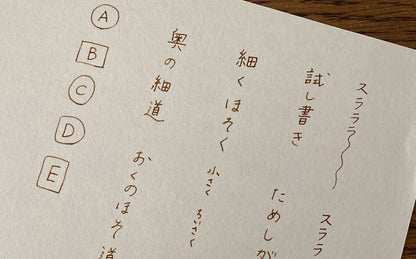 スラララ〜
スララ
試し書き
ためしが
細くほそく
小さく ちいさく
奥の細道
おくのほそ道
A
B
C
D
E